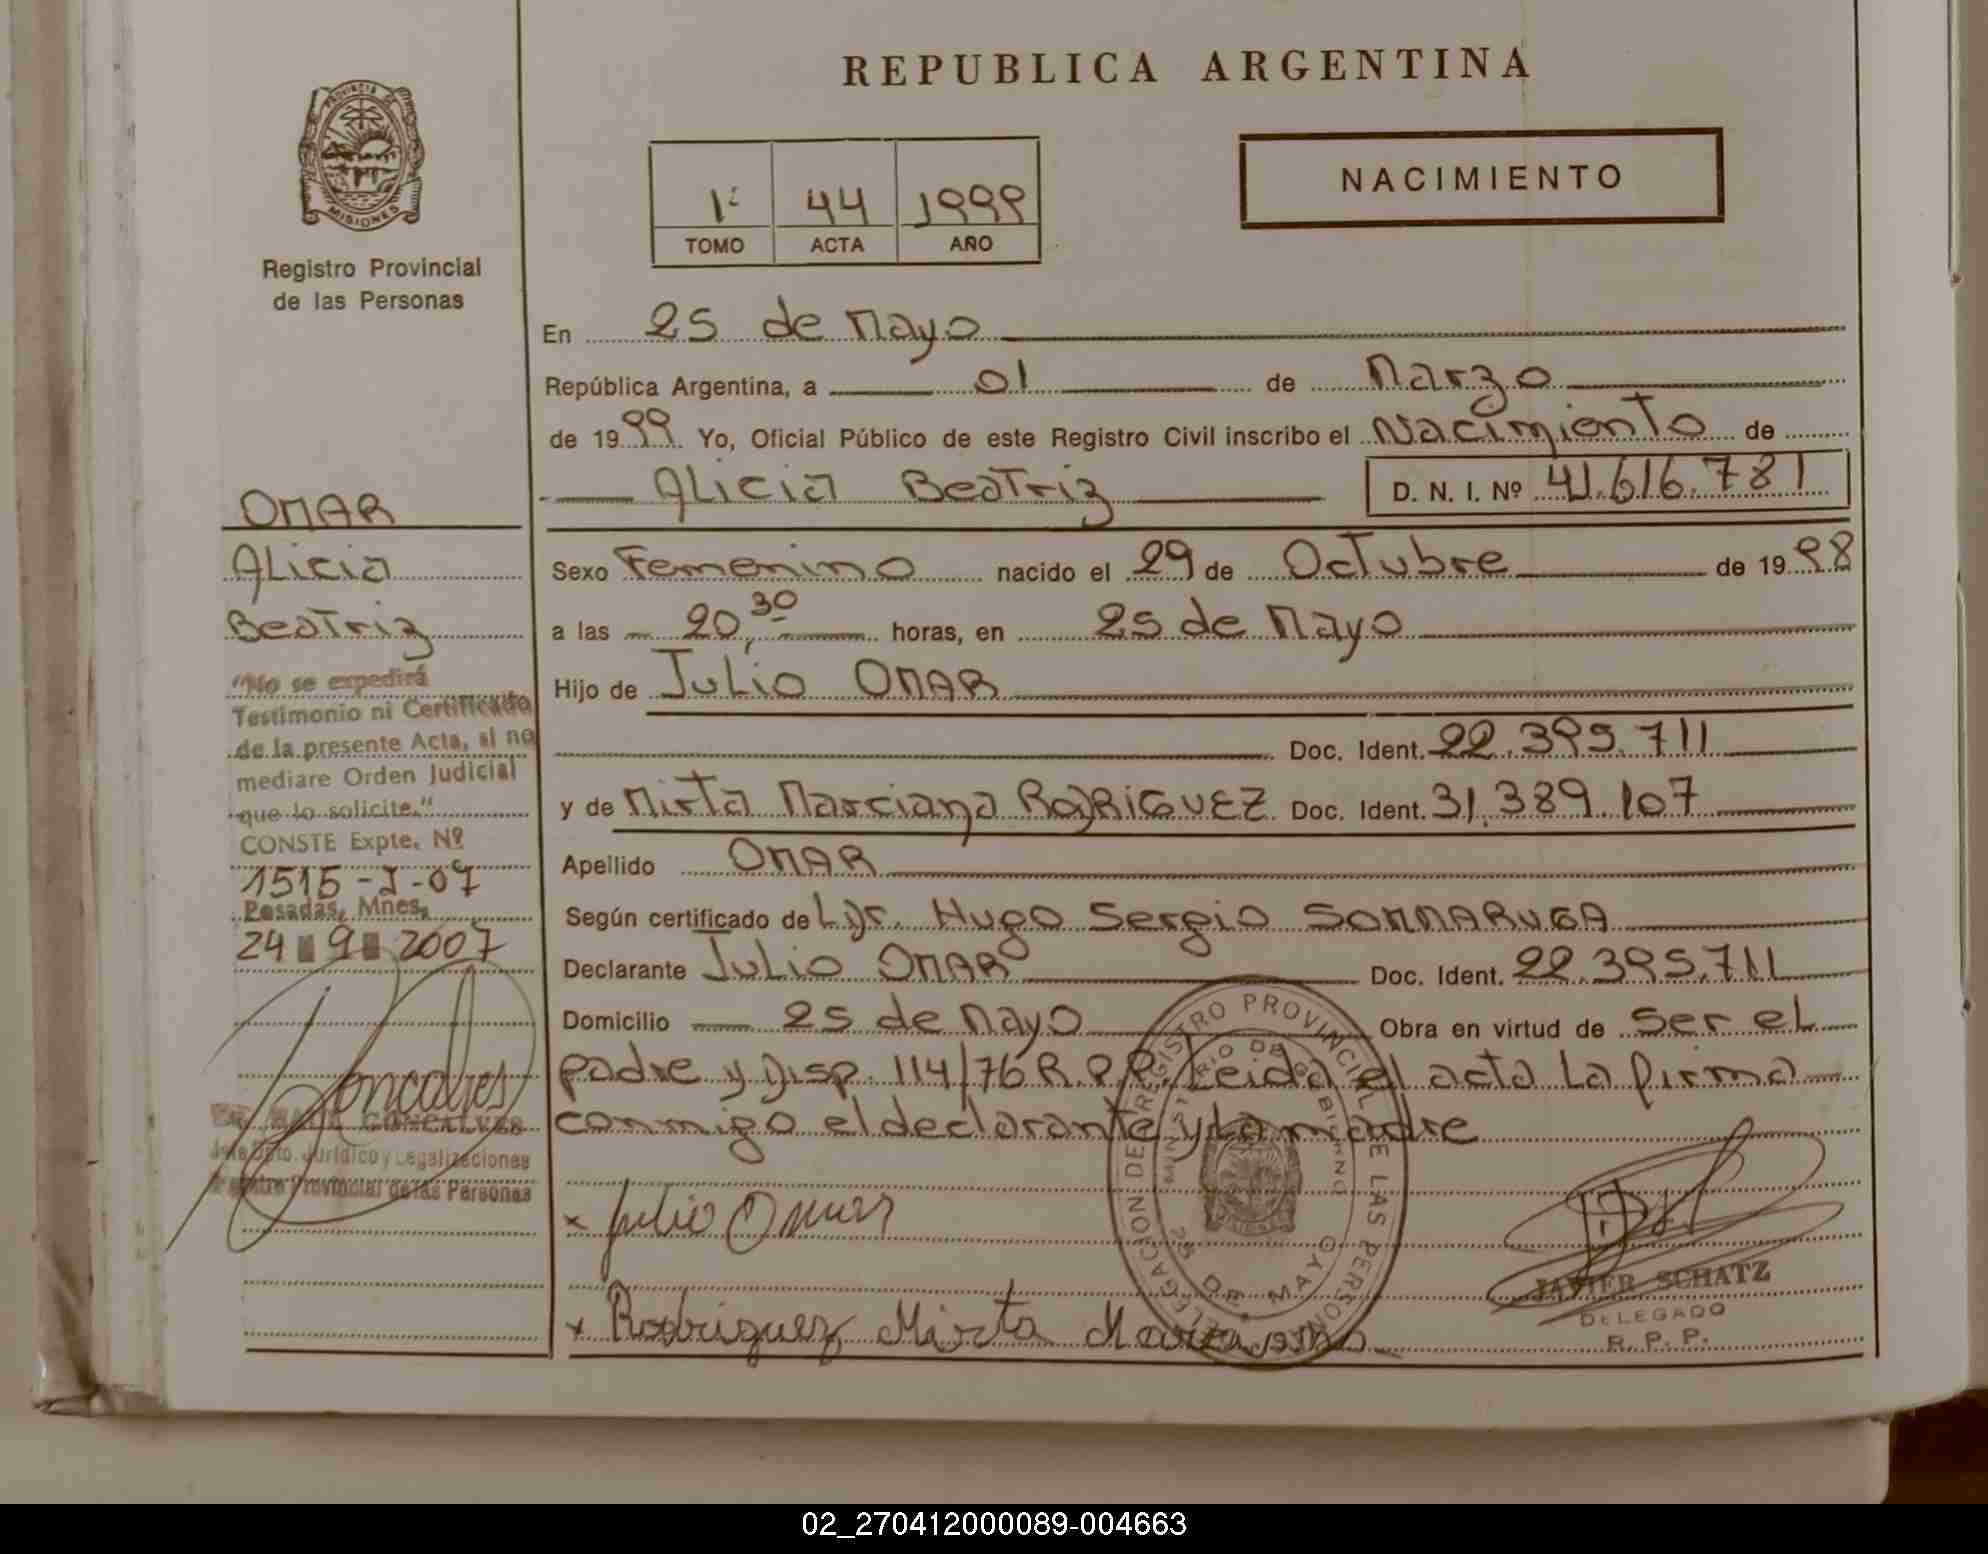 REPUBLICA ARGENTINA
PROVINCIA DE
MISIONES
Registro Provincial
de las Personas
1: 44 1999
TOMO ACTA AÑO
NACIMIENTO
En 25 de Mayo
República Argentina, a 01 de Marzo
de 1999 Yo, Oficial Público de este Registro Civil inscribo el Nacimiento de
Alicia Beatriz D. N. I. Nº 41.616.781
OMAR
Alicia
Beatriz
"No se expedirá
Testimonio ni Certificado
de la presente Acta, si no
mediare Orden Judicial
que lo solicite."
CONSTE Expte. Nº
1515-J-07
Posadas, Mnes,
24 9 2007
Goncalves
RAUL GONCALVES
Jefe Dpto. Jurídico y Legalizaciones
Registro Provincial de las Personas
Sexo Femenino nacido el 29 de Octubre de 1998
a las 20,30 horas, en 25 de Mayo
Hijo de Julio OMAR
Doc. Ident. 22.395.711
y de Mirta Marciana RODRIGUEZ Doc. Ident. 31.389.107
Apellido OMAR
Según certificado de L Dr. Hugo Sergio SOMMARUGA
Declarante Julio OMAR Doc. Ident. 22.395.711
Domicilio 25 de Mayo Obra en virtud de ser el
padre y Disp. 114/76 R.P.P. Leida el acta La firma
conmigo el declarante y la madre
x Julio Omar
x Rodriguez Mirta Marciana
DELEGACION DE REGISTRO PROVINCIAL DE LAS PERSONAS
MINISTERIO DE GOBIERNO
25 DE MAYO
JAVIER SCHATZ
DELEGADO
R. P. P.
02_270412000089-004663